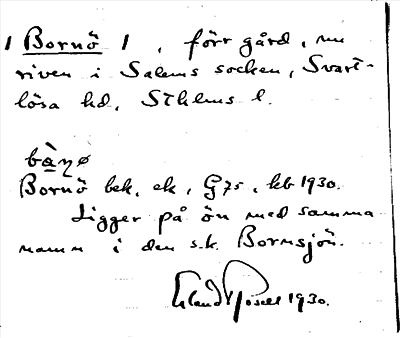 1 Bornö 1, förr gård, nu
riven i Salems socken, Svart-
lösa hd, Sthlms l.
Bornö bek. ek, G75, kb 1930.
Ligger på ön med samma
namn i den s.k. Bornsjön.
1930.